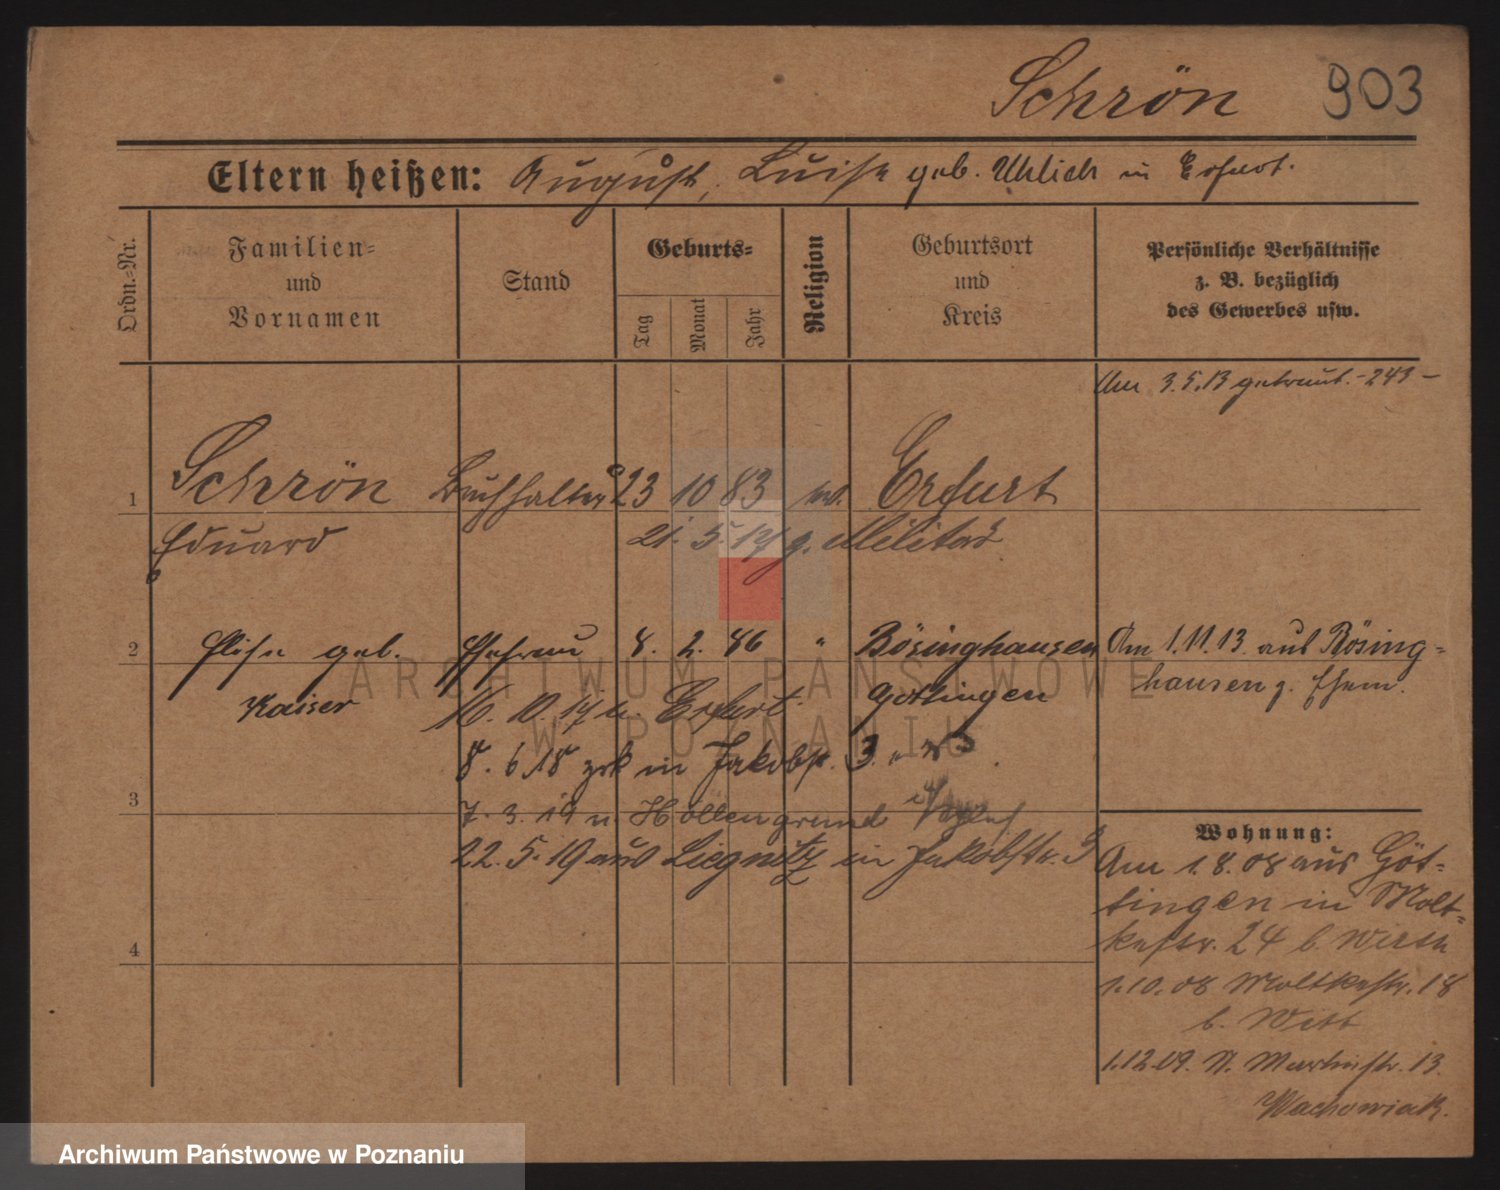 Schrön 903
Eltern heißen: August, Luise geb. Uhlich in Erfurt.
Ordn.-Nr.
Familien-
und
Vornamen
Stand
Geburts-
Tag
Monat
Jahr
Religion
Geburtsort
und
Kreis
Persönliche Verhältnisse
z. B. bezüglich
des Gewerbes usw.
Am 3.5.13 getraut. -243-
1 Schrön Buchhalter 23 10 83 ev. Erfurt
Eduard 21. 5. 17 z. Militär
2 Elise geb. Ehefrau 8. 2. 86 " Bösinghausen
Kaiser Göttingen
Am 1.11.13. aus Bösing-
hausen z. Ehem.
16. 10. 17 n. Erfurt
8. 6 18 zrk in Jakobstr. 3.
3
7. 3. 19 n Höllengrund
22. 5. 19 aus Liegnitz in Jakobstr. 3
4
Wohnung:
Am 1.8.08 aus Göt-
tingen in Molt-
kestr. 24 b. Wirth
1.10.08 Moltkestr. 18
b. Witt
1.12.09. St. Martinstr. 13.
Wachowiak.
ARCHIWUM PAŃSTWOWE
W POZNANIU
Archiwum Państwowe w Poznaniu